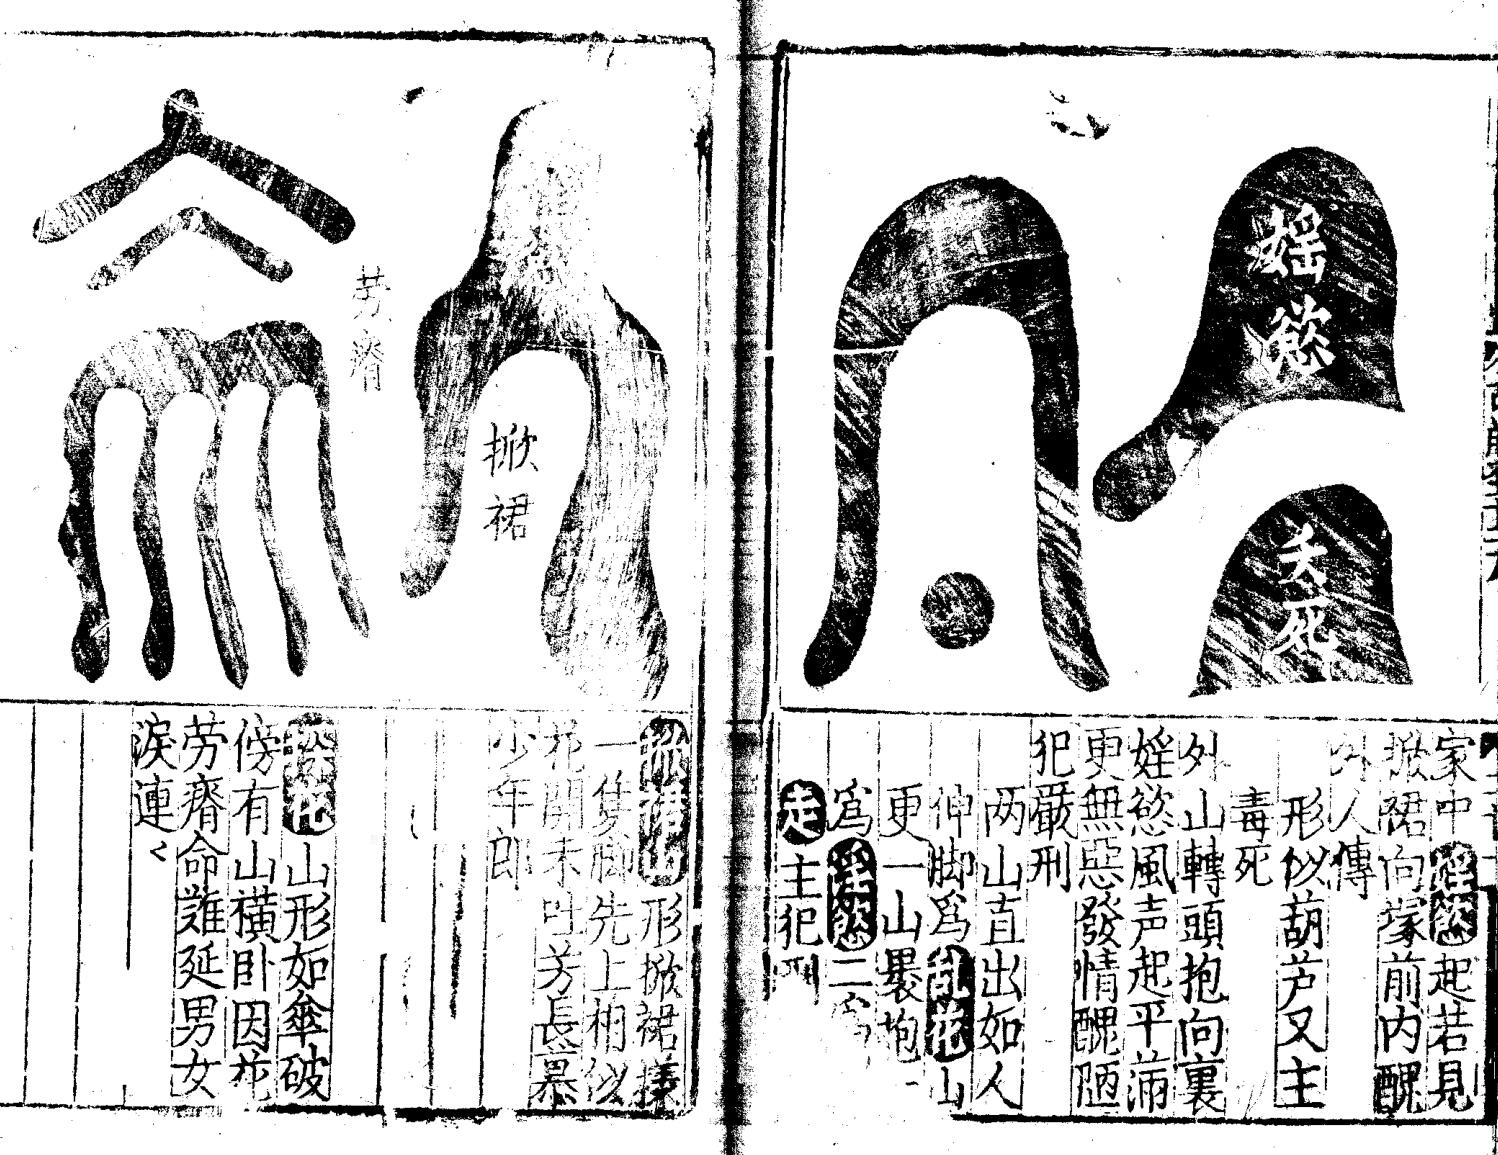 婬慾
夭死
家中婬慾起若見
掀裙向塚前内醜
外人傳
形似葫芦又主
毒死
外山轉頭抱向裏
婬慾風声起平淌
更無惡發情醜陋
犯嚴刑
两山直出如人
伸脚爲乱花山
更一山裹抱
爲婬慾二
走主犯刑
掀裙
劳瘠
形掀裙㨾
一隻脚先上相似
花開未吐芳長慕
少年郎
花山形如傘破
傍有山横卧因花
劳瘠命難延男女
淚連〻